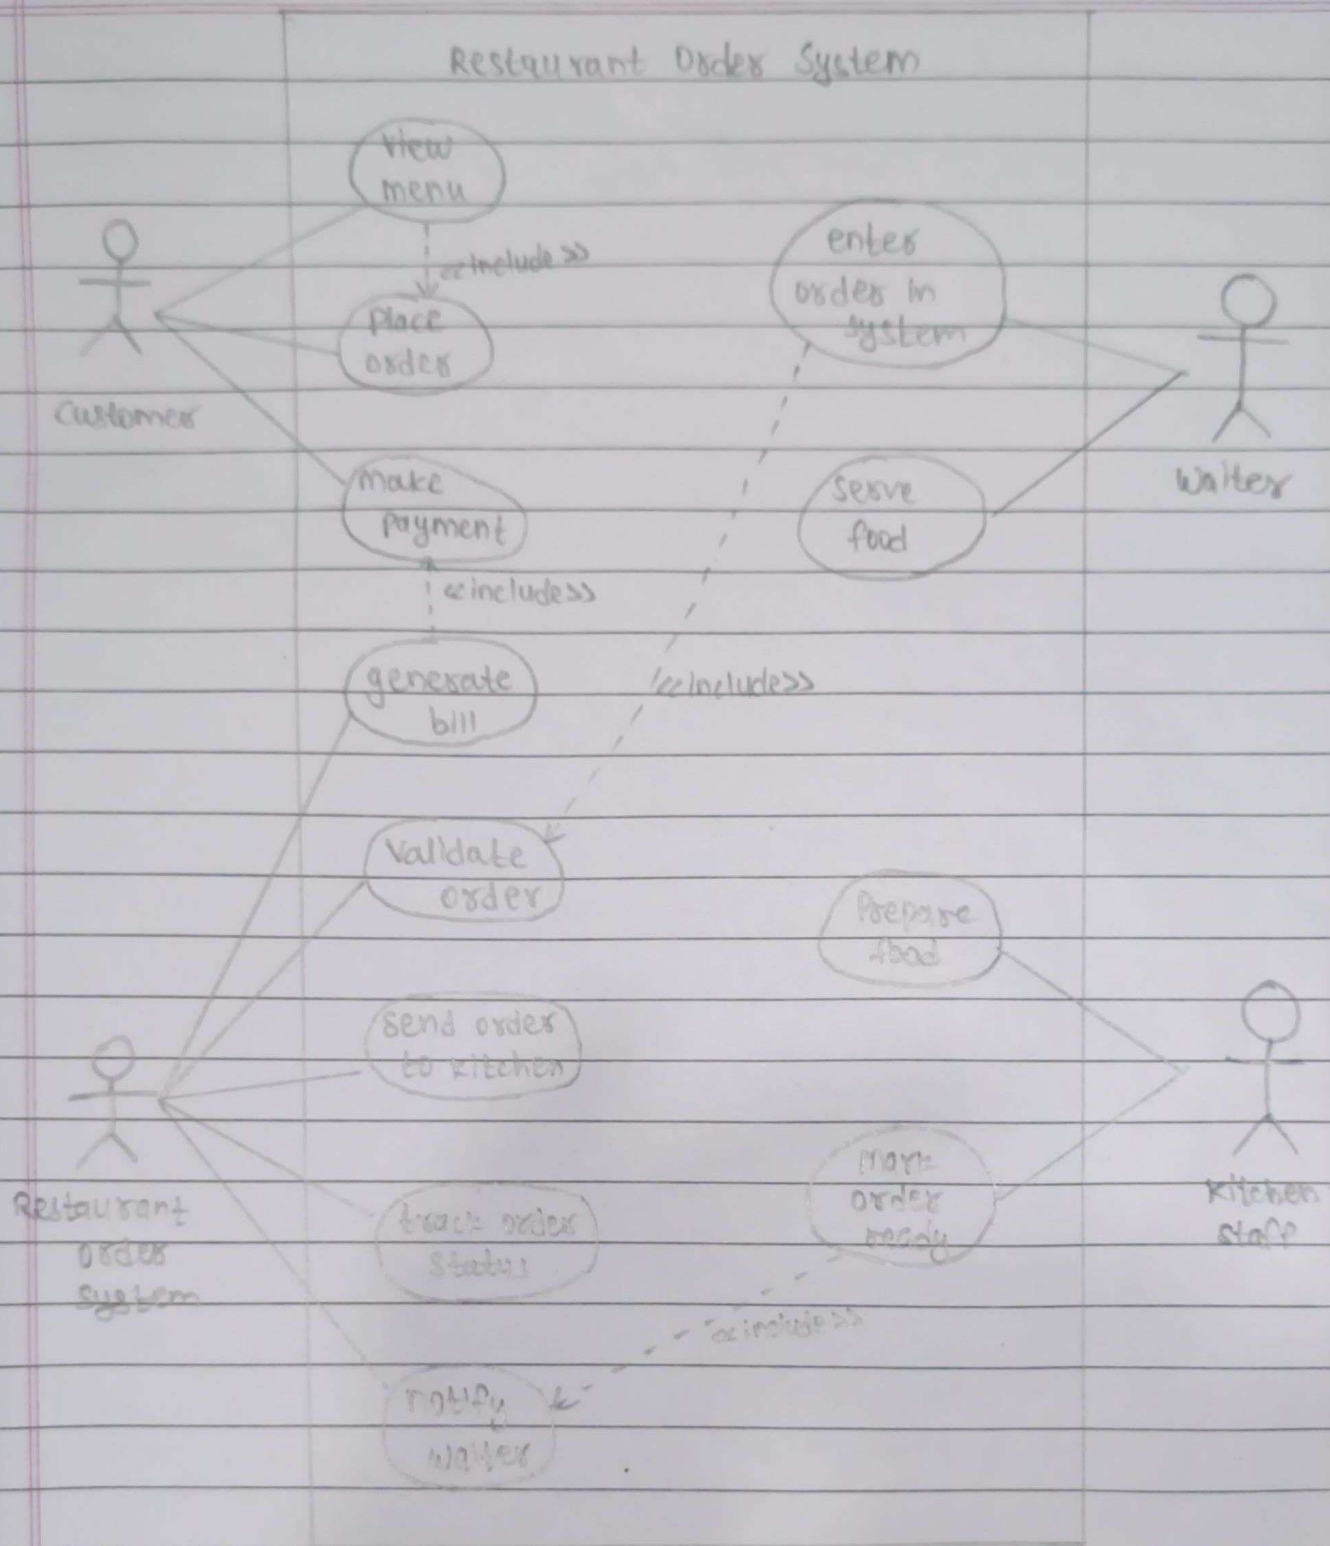 Restaurant Order System
View
menu
<<include>>
Place
order
Customer
enter
order in
system
Waiter
make
payment
serve
food
<<include>>
generate
bill
<<include>>
Validate
order
Prepare
food
send order
to kitchen
Restaurant
order
system
mark
order
ready
Kitchen
staff
track order
status
<<include>>
notify
waiter